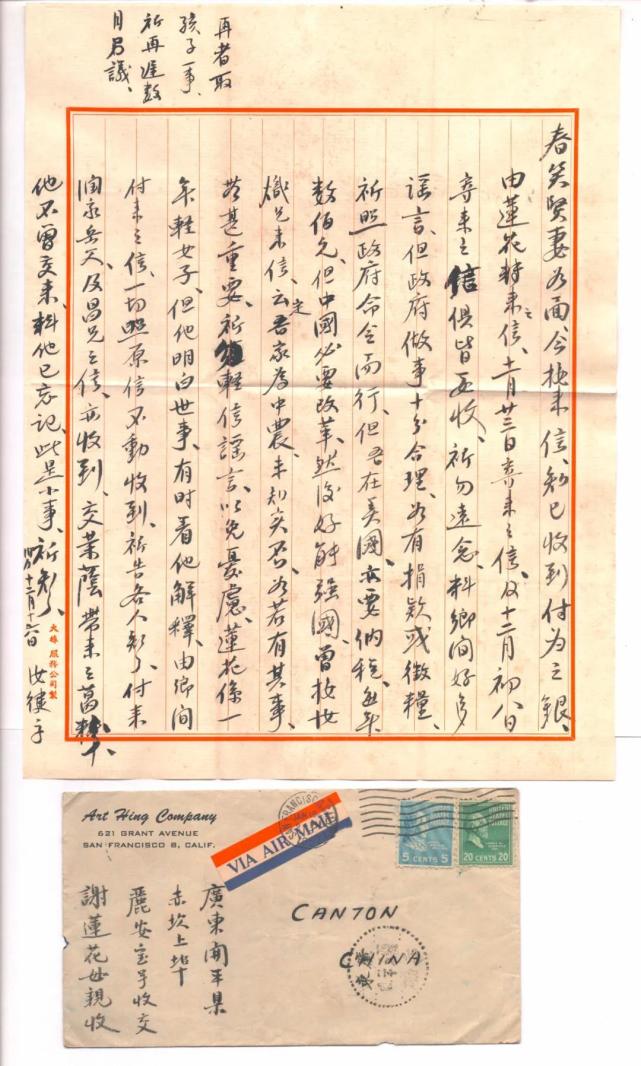 春笑賢妻如面、今接来信、知已收到付为之銀、
由蓮花转来之信、十一月廿三日寄来之信、及十二月初八日
寄来之信俱皆妥收、祈勿遠念、料鄉间好多
謠言、但政府做事十分合理、如有捐款或徵糧、
祈照政府命令而行、但吾在美國、亦要納税、每年
数佰元、但中國必要改革、然後好能强國、曾接世
熾兄来信、云吾家定为中農、未知实否、如若有其事、
甚重要、祈勿輕信謠言、以免憂慮、蓮花係一
年軽女子、但他明白世事、有时看他解釋、由鄉间
付来之信、一切照原信不動收到、祈告各人知了、付来
润家岳父、及昌兄之信、亦收到、交荣蔭带来之葛粉、
他不曾交来、料他已忘记、此是小事、祈知了、
十二月十六日 汝 手
大埠 服務公司製
再者取
孩子一事、
祈再遲数
月另議、
Art Hing Company
621 GRANT AVENUE
SAN FRANCISCO 8, CALIF.
VIA AIR MAIL
5 CENTS 5
20 CENTS 20
CANTON
CHINA
廣東開平県
赤坎上埠
麗安宝号收交
謝蓮花母親收